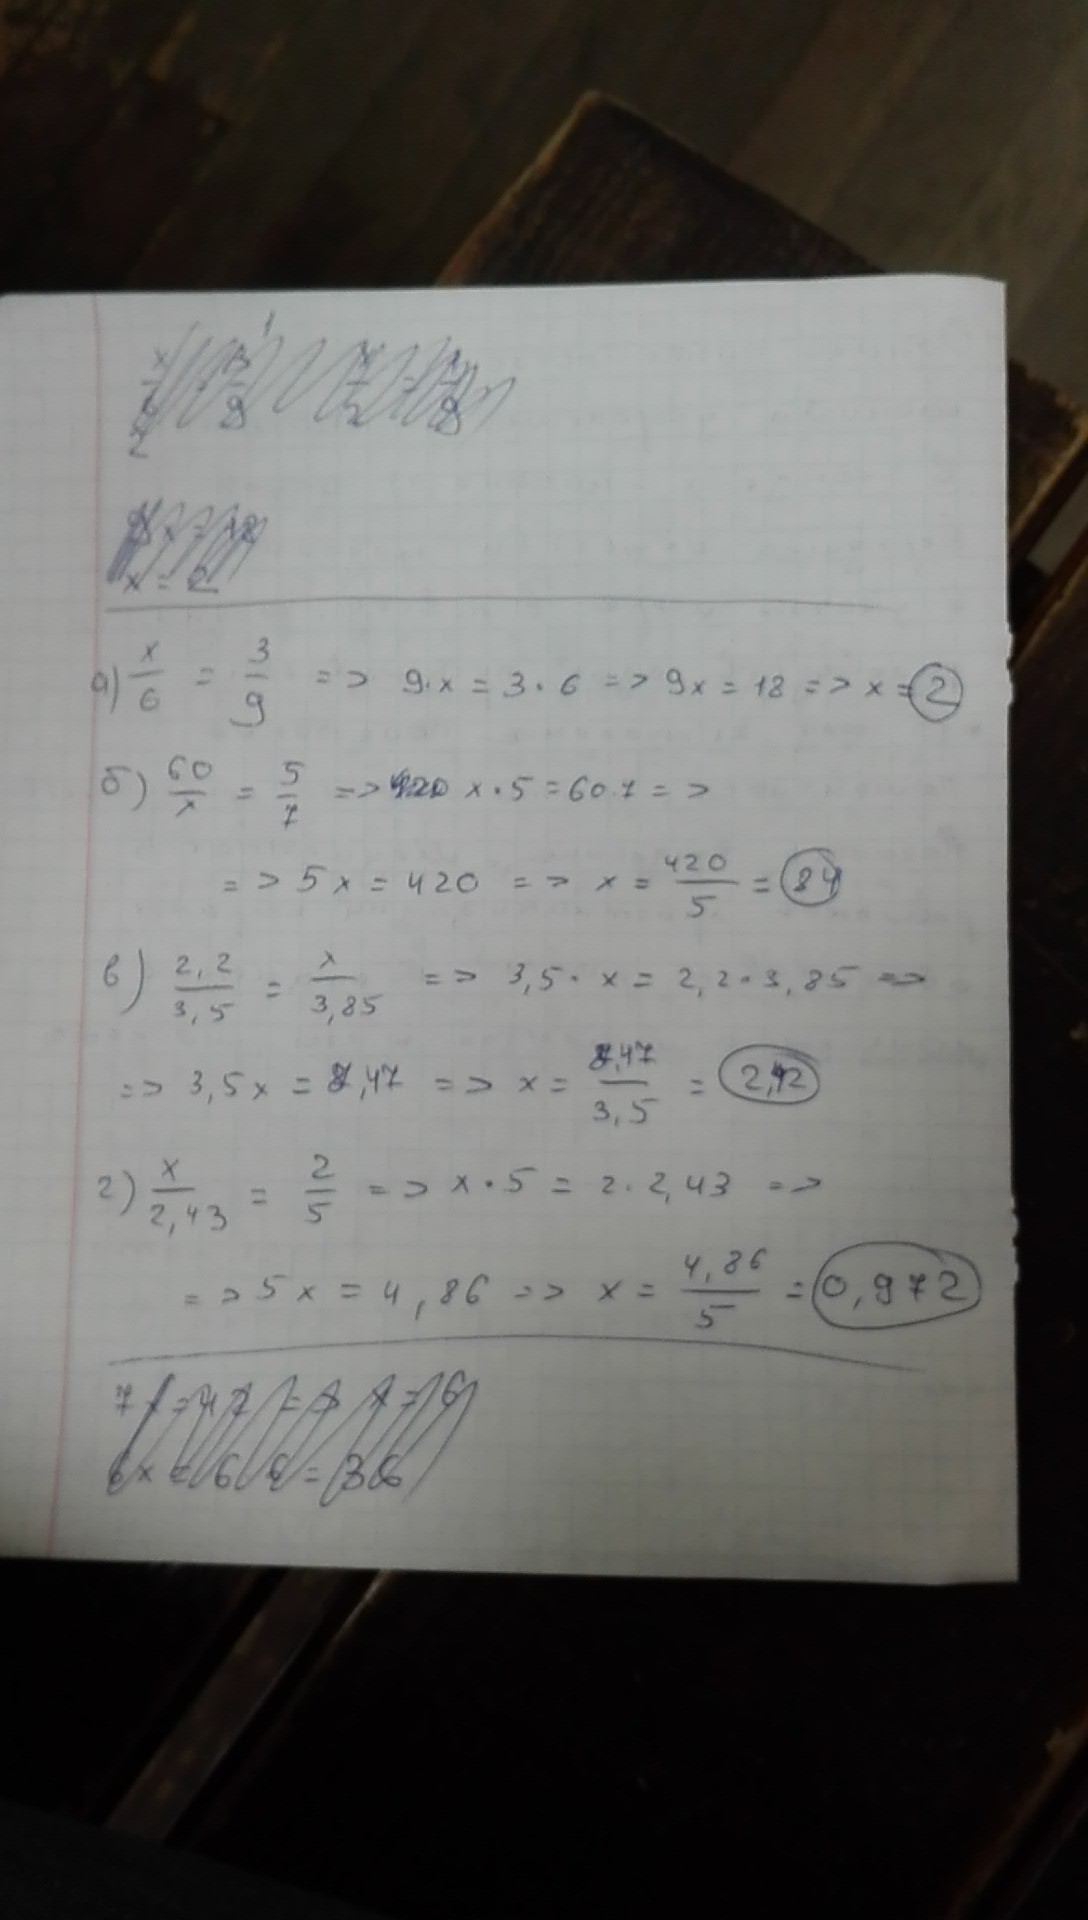 а) x/6 = 3/9 => 9·x = 3·6 => 9x = 18 => x = 2
б) 60/x = 5/7 => x·5 = 60·7 =>
=> 5x = 420 => x = 420/5 = 84
в) 2,2/3,5 = x/3,85 => 3,5·x = 2,2·3,85 =>
=> 3,5x = 8,47 => x = 8,47/3,5 = 2,42
г) x/2,43 = 2/5 => x·5 = 2·2,43 =>
=> 5x = 4,86 => x = 4,86/5 = 0,972